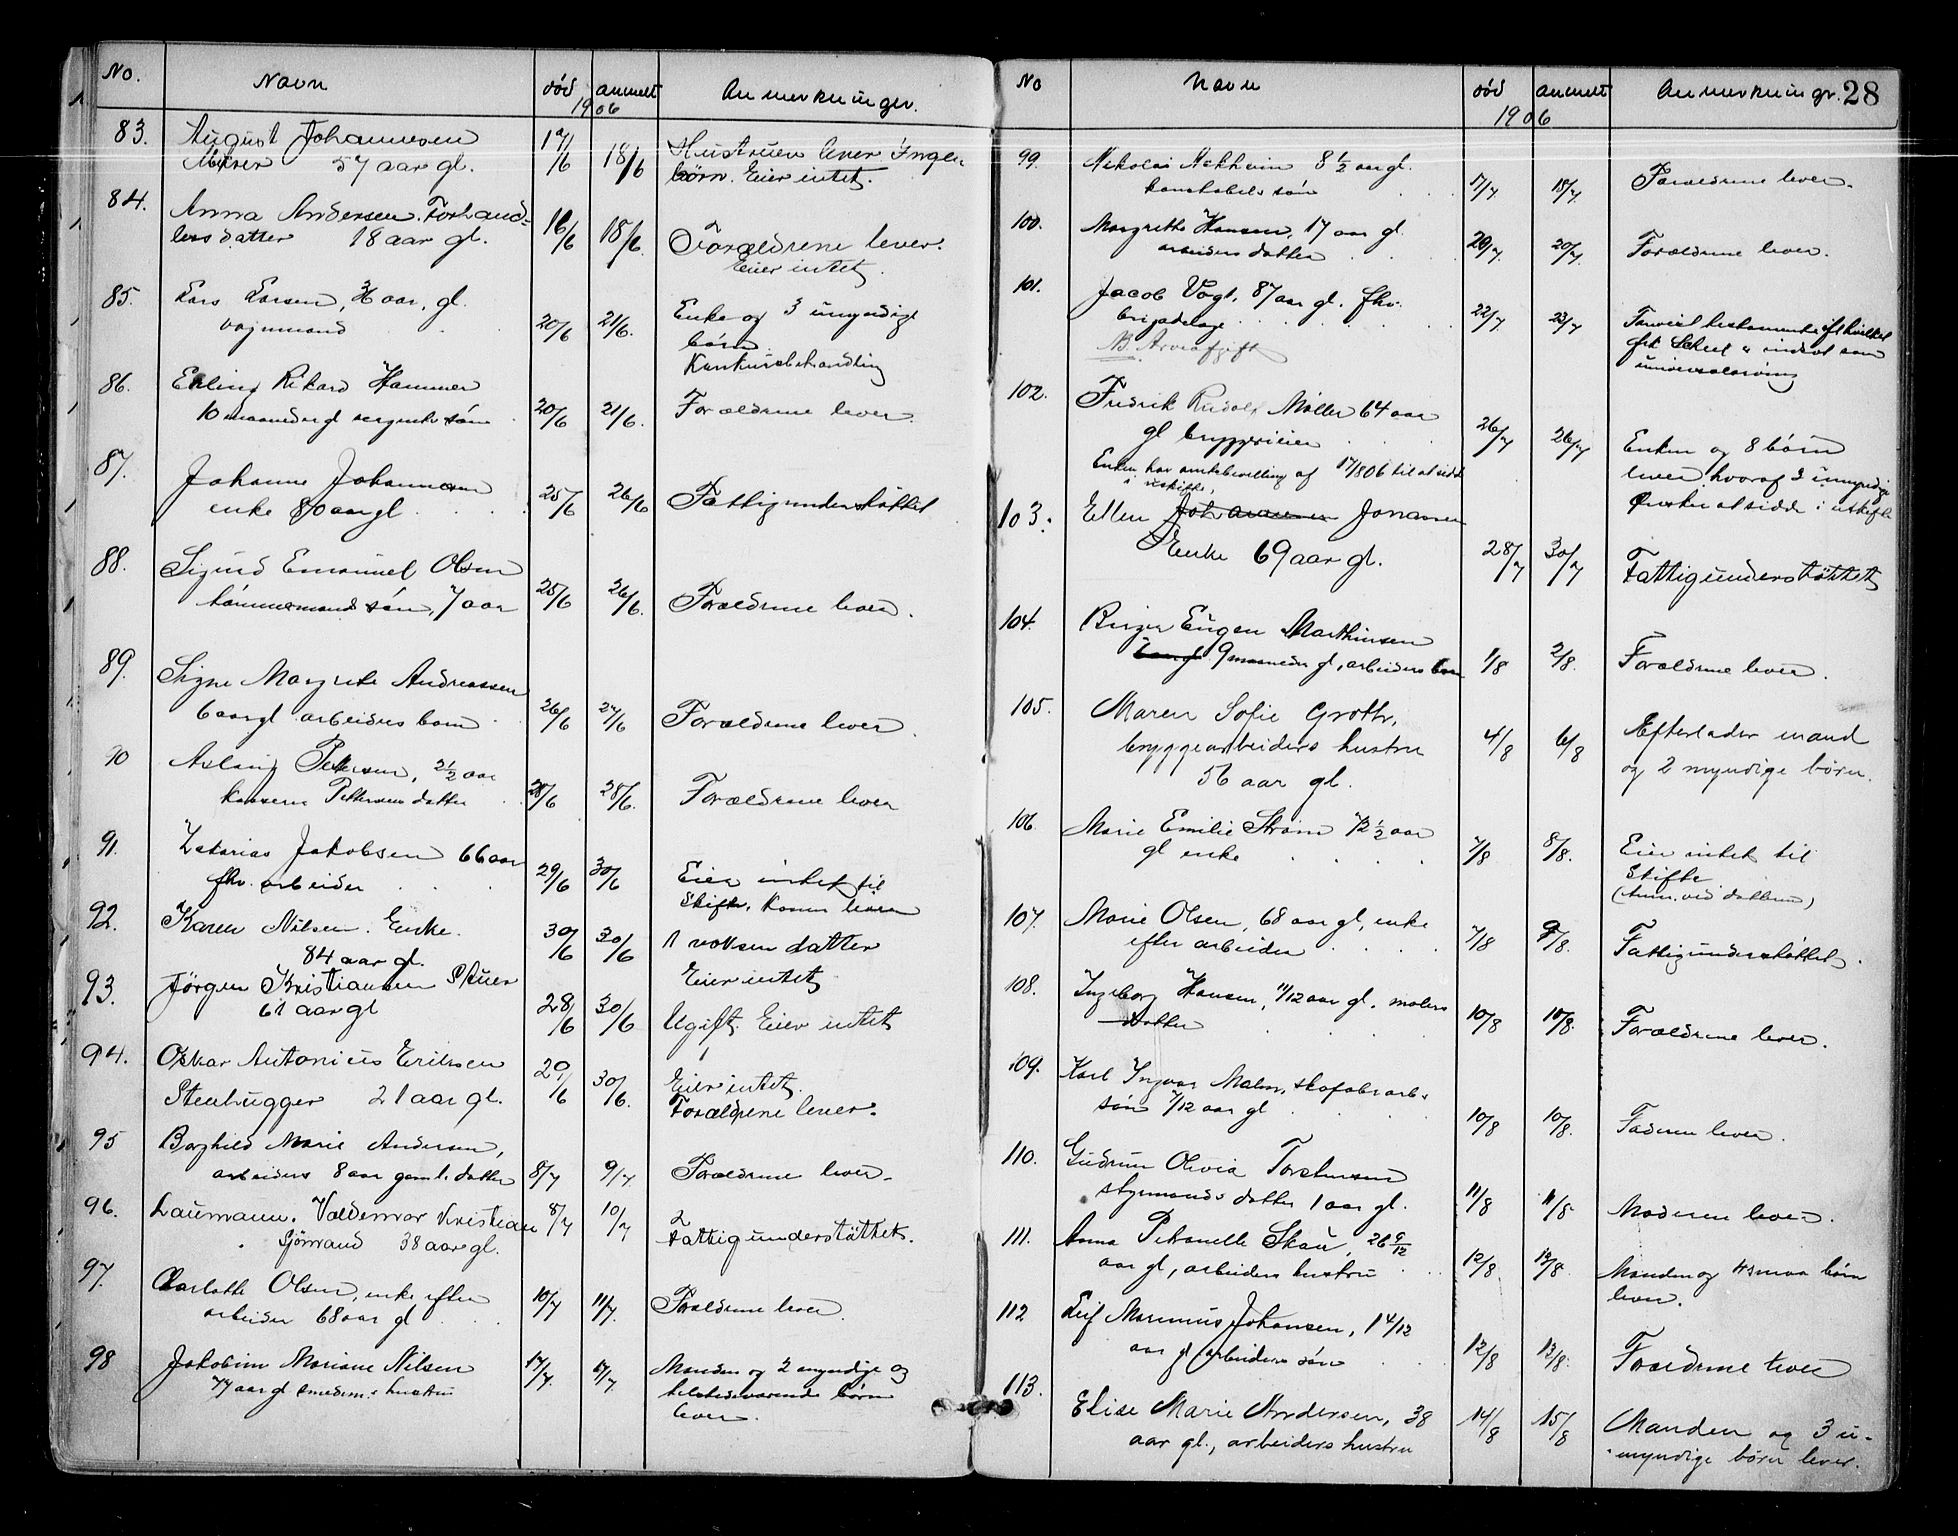 No. Navn död anmelt Anmerkninger.
1906
83. August Johannesen 17/6 18/6 Hustruen lever Ingen
Murer 57 aar gl. børn. Eier intet.
84. Anna Andersen. Forhand-
lers datter 18 aar gl. 16/6 18/6 Forældrene lever.
Eier intet.
85. Lars Larsen, 36 aar, gl.
vognmand 20/6 21/6. Enke og 3 umyndige
børn
Konkursbehandling
86. Erling Rikard Hammer
10 maaneder gl sergents søn 20/6 21/6. Forældrene lever.
87. Johanne Johannesen
enke 80 aar gl 25/6 26/6 Fattigunderstøttet
88. Sigurd Emanuel Olsen
tømmermands søn, 7 aar 25/6 26/6. Forældrene lever.
89. Signe Margrete Andreassen
6 aar gl arbeiders barn 26/6 27/6 Forældrene lever.
90 Aslaug Pettersen, 2 1/2 aar
Pettersens datter 28/6 28/6. Forældrene lever
91. Zakarias Jakobsen 66 aar
fhv. arbeider 29/6 30/6 Eier intet til
Skifte, Konen lever
92. Karen Nilsen. Enke.
84 aar gl. 30/6 30/6 1 voksen datter
Eier intet
93. Jörgen Kristiansen Skuer
61 aar gl 28/6 30/6 Ugift. Eier intet
94. Oskar Antonius Eriksen
Stenhugger 21 aar gl. 29/6 30/6. Eier intet.
Forældrene lever.
95 Borghild Marie Andersen,
arbeiders 8 aar gamle datter 8/7 9/7. Forældrene lever.
96. Laumann. Valdemar Kristian 8/7 10/7
Sjömand 38 aar gl. Fattigunderstöttet.
97. Charlotte Olsen, enke efter
arbeider 68 aar gl 10/7 11/7. Forældrene lever.
98 Jakobine Mariane Nilsen
77 aar gl smedms hustru 17/7. 17/7 Manden og 2 myndige og
tilstedeværende børn
lever.
No Navn död anmelt Anmerkninger. 28
1906
99. Nikolai Nakheim 8 1/2 aar gl.
konstabels søn 17/7 18/7 Forældrene lever.
100. Margrethe Hansen, 17 aar gl.
arbeiders datter 20/7 20/7. Forældrene lever.
101. Jacob Vogt, 87 aar gl. fhv.
brigadelæge 22/7 23/7 testamente ifl hvilket
frk Scheel er indsat som
universalarving
NB. Arveafgift
102. Fredrik Rudolf Møller 64 aar
gl bryggerieier 26/7 26/7 Enken og 8 børn
lever, hvoraf 3 umyndige
Enken har amtsbevilling af 17/8 06 til at sidde
i uskifte. Ønsker at sidde i uskifte
103. Ellen Johannesen Jonassen
Enke 69 aar gl. 28/7 30/7 Fattigunderstöttet
104. Birger Eugen Marthinsen
9 maaneder gl, arbeiders barn 1/8 2/8. Forældrene lever.
105. Maren Sofie Groth,
bryggearbeiders hustru 4/8 6/8 Efterlader mand
og 2 myndige børn.
56 aar gl.
106. Marie Emilie Strøm 72 1/2 aar
gl enke 7/8 8/8. Eier intet til
Skifte
(Anm. ved datteren)
107. Marie Olsen, 68 aar gl, enke
efter arbeider 7/8 9/8. Fattigunderstøttet.
108. Ingeborg Hansen, 11/12 aar gl. malers
datter 10/8 10/8. Forældrene lever.
109. Karl Ingvar Malm, skofabr arb.
søn 7/12 aar gl 10/8 10/8. Faderen lever.
110. Gudrun Olivia Torstensen
styrmands datter 1 aar gl. 11/8 11/8 Moderen lever.
111. Anna Petronelle Skau, 26 9/12
aar gl, arbeiders hustru 12/8 12/8. Manden og 4 smaa børn
lever.
112 Leif Marinius Johansen, 1 4/12
aar gl arbeiders søn 12/8 13/8. Forældrene lever
113. Elise Marie Andersen, 38
aar gl., arbeiders hustru 14/8 15/8 Manden og 3 u-
myndige børn lever.